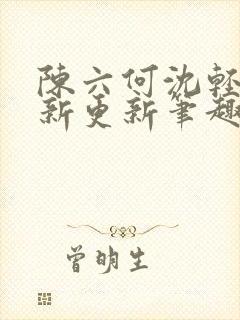 陳六何沈輕
新更新筆趣
曾明生